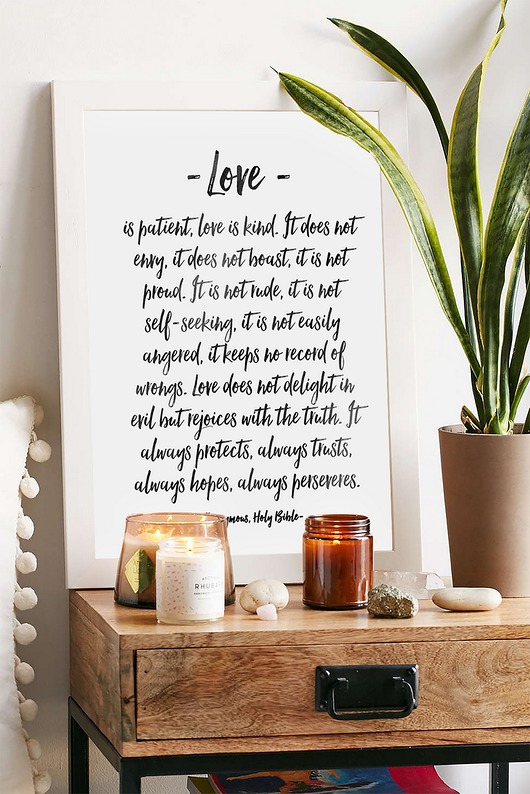 -Love -
is patient, love is kind. It does not
envy, it does not boast, it is not
proud. It is not rude, it is not
self-seeking, it is not easily
angered, it keeps no record of
wrongs. Love does not delight in
evil but rejoices with the truth. It
always protects, always trusts,
always hopes, always perseveres.
Holy Bible-